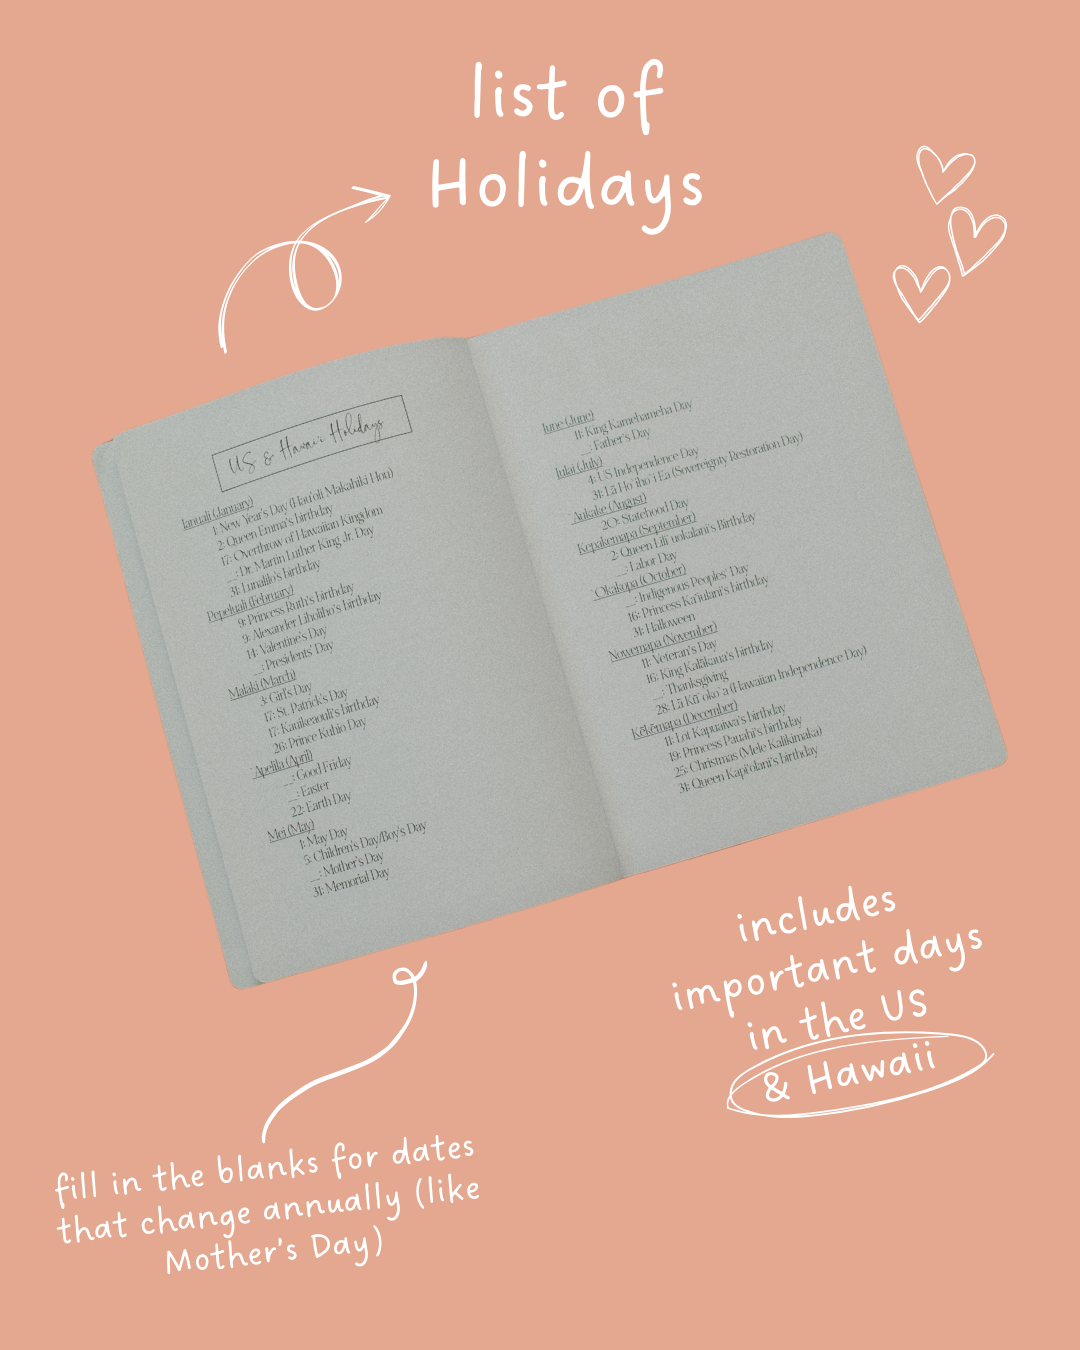 list of
Holidays
US & Hawai'i Holidays
Ianuali (January)
1: New Year's Day (Hau'oli Makahiki Hou)
2: Queen Emma's birthday
17: Overthrow of Hawaiian Kingdom
__: Dr. Martin Luther King Jr. Day
31: Lunalilo's birthday
Pepeluali (February)
9: Princess Ruth's birthday
9: Alexander Liholiho's birthday
14: Valentine's Day
__: Presidents' Day
Malaki (March)
3: Girl's Day
17: St. Patrick's Day
17: Kauikeaouli's birthday
26: Prince Kuhio Day
'Apelila (April)
__: Good Friday
__: Easter
22: Earth Day
Mei (May)
1: May Day
5: Children's Day/Boy's Day
__: Mother's Day
31: Memorial Day
Iune (June)
11: King Kamehameha Day
__: Father's Day
Iulai (July)
4: US Independence Day
31: Lā Ho`iho`i Ea (Sovereignty Restoration Day)
`Aukake (August)
20: Statehood Day
Kepakemapa (September)
2: Queen Lili`uokalani's Birthday
__: Labor Day
`Okakopa (October)
__: Indigenous Peoples' Day
16: Princess Ka'iulani's birthday
31: Halloween
Nowemapa (November)
11: Veteran's Day
16: King Kalākaua's birthday
__: Thanksgiving
28: Lā Kū`oko`a (Hawaiian Independence Day)
Kēkēmapa (December)
11: Lot Kapuaiwa's birthday
19: Princess Pauahi's birthday
25: Christmas (Mele Kalikimaka)
31: Queen Kapi'olani's birthday
includes
important days
in the US
& Hawaii
fill in the blanks for dates
that change annually (like
Mother's Day)